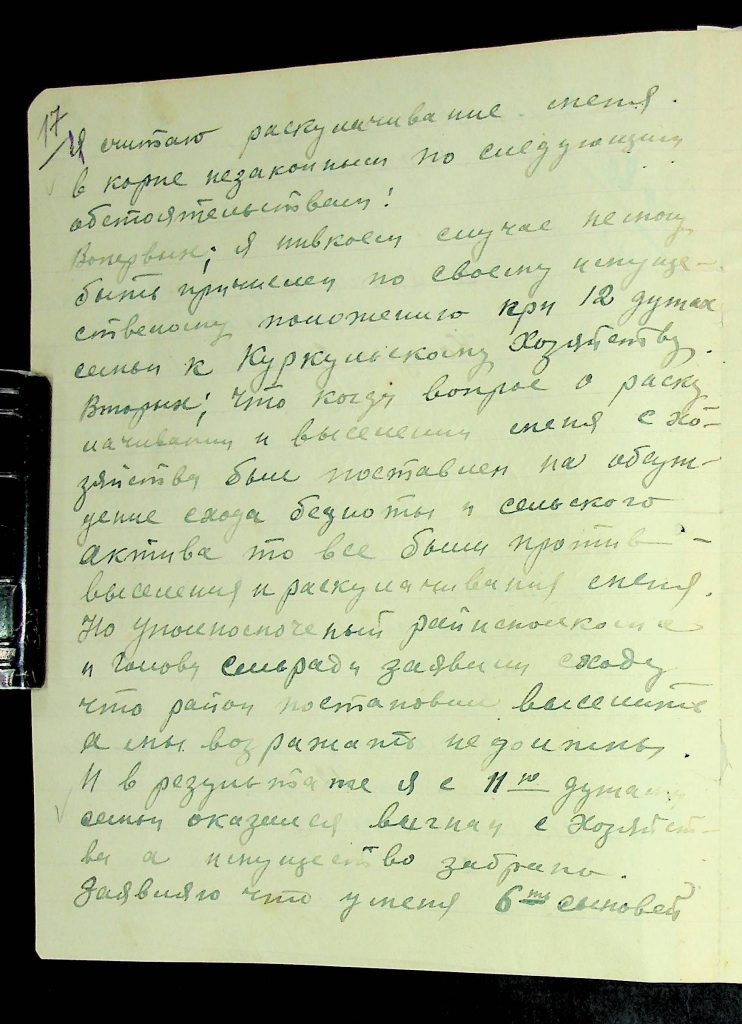 17
Я считаю раскулачивание меня.
в корне незаконным по следующим
обстоятельствам:
Вопервых; я нивкоем случае немогу
быть причислен по своему имуще-
ственому положению при 12 душах
семьи к Куркульскому Хозяйству.
Вторых; что когда вопрос о раску
лачивании и выселении меня с хо-
зяйства был поставлен на обсуж-
дение схода бедноты и сельского
актива то все были против -
выселения и раскулачивания меня.
Но уполномоченый райисполкома
и Голова сельради заявили сходу
что район постановил выселить
а мы возражать недолжны.
И в результате я с 11ю душами
семьи оказался выгнан с Хозяйст-
ва а имущество забрано.
Заявляю что уменя 6ть сыновей